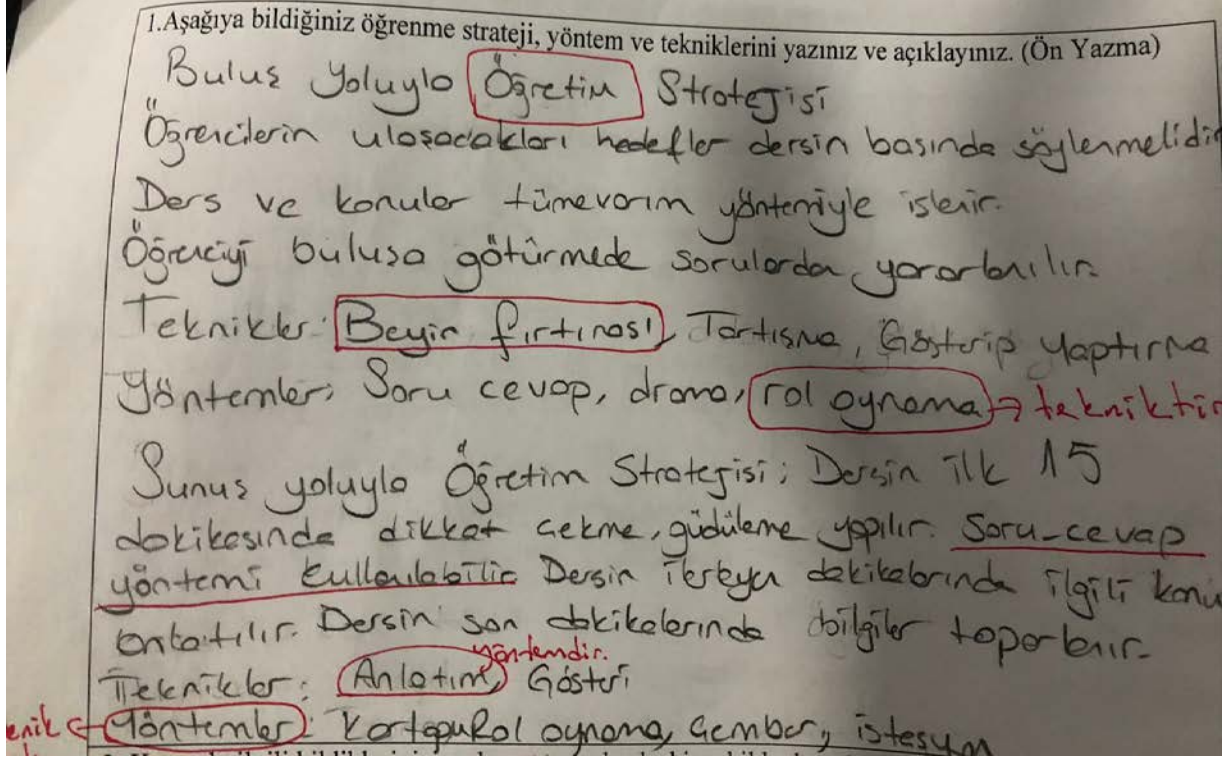 1.Aşağıya bildiğiniz öğrenme strateji, yöntem ve tekniklerini yazınız ve açıklayınız. (Ön Yazma)
Buluş Yoluyla Öğretim Stratejisi
Öğrencilerin ulaşacakları hedefler dersin başında söylenmelidir
Ders ve konular tümevarım yöntemiyle işlenir.
Öğrenciyi buluşa götürmede sorulardan yararlanılır.
Teknikler: Beyin fırtınası, Tartışma, Gösterip yaptırma
Yöntemler; Soru cevap, drama, rol oynama → tekniktir
Sunuş yoluyla Öğretim Stratejisi; Dersin ilk 15
dakikasında dikkat çekme, güdüleme yapılır. Soru-cevap
yöntemi kullanılabilir Dersin ilerleyen dakikalarında ilgili konu
anlatılır. Dersin son dakikalarında bilgiler toparlanır.
yöntemdir.
Teknikler: Anlatım, Gösteri
enik ← Yöntemler: Kartopu Rol oynama, Çember, istasyon